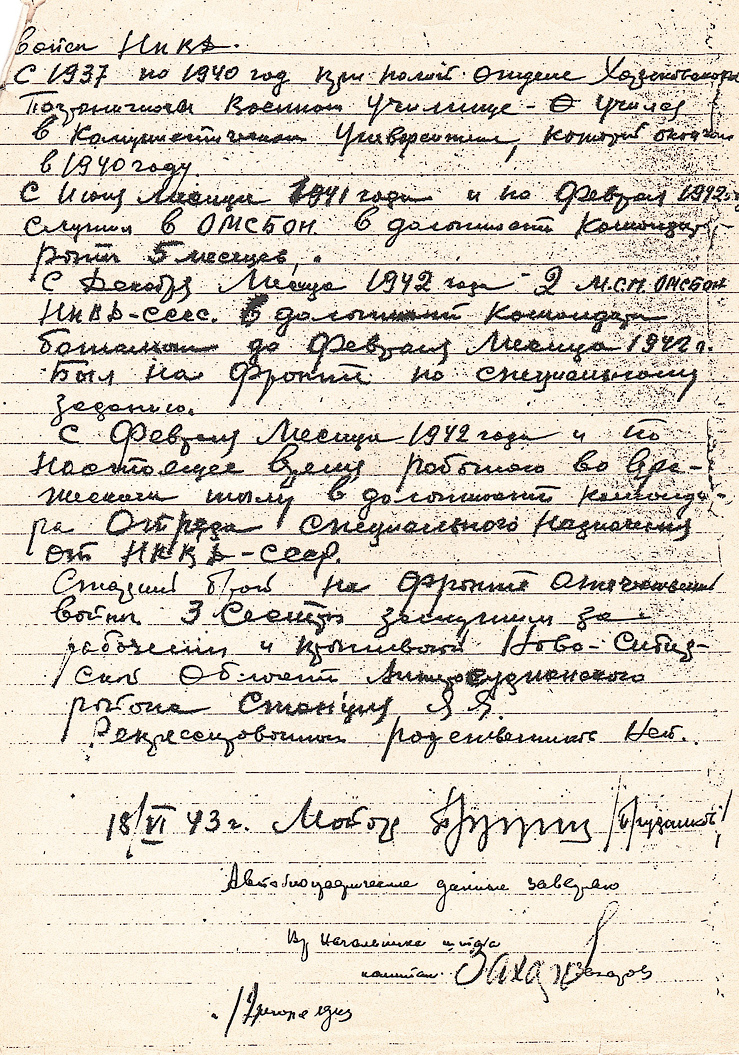 войск НКВД.
С 1937 по 1940 год при полит отделе
Пограничном Военном училище - учился
в Коммунистическом Университете, который окончил
в 1940 году.
С Июня Месяца 1941 года и по Февраль 1942
служил в ОМСБОН в должности Командира
роты 5 месяцев,.
С Декабря Месяца 1942 года - 2 М.С.П. ОМСБОН
НКВД-СССР. В должности Командира
батальона до Февраля Месяца 1942 г.
Был на Фронте по специальному
заданию.
С Февраля Месяца 1942 года и по
настоящее время работаю во вра-
жеском тылу в должности команди-
ра Отряда специального назначения
от НККД-СССР.
брат на Фронте Отечественной
войны 3 Сестры замужем за
рабочими и Ново-Сибир-
ской Области Анжеро-Судженского
района Станция Я Я.
Репрессированных родственников Нет.
18/VI 43 г. Майор
Автобиографические данные заверяю
Вр начальника штаба
капитан Захаров